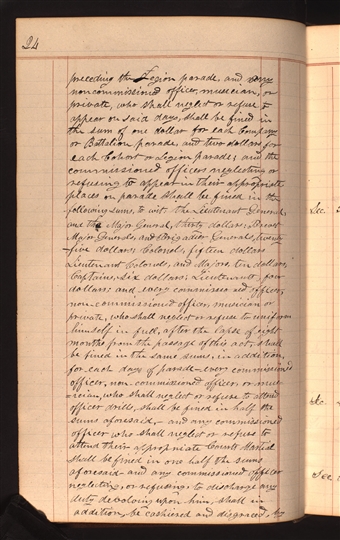 24
preceding the Legion parade, and every
noncommissioned officer, musician, or
private, who shall neglect or refuse to
appear on said days, shall be fined in
the sum of one dollar for each Company
or Battalion parade, and two dollars for
each Cohort or Legion parade; and the
commissioned officers neglecting or
refusing to appear in their appropriate
places on parade shall be fined in the
following sums, to wit: the Lieutenant General,
and the Major General, thirty dollars; Brevet
Major Generals, and Brigadier Generals, twenty
-five dollars; Colonels, fifteen dollars
Lieutenant Colonels, and Majors, ten dollars;
Captains, six dollars; Lieutenants, four
dollars; and every commissioned officer,
non-commissioned officer, musician or
private, who shall neglect or refuse to uniform
himself in full, after the lapse of eight
months from the passage of this act, shall
be fined in the same sums, in addition,
for each day of parade—every commissioned
officer, non-commissioned officer or mus-
-ician, who shall neglect or refuse to attend
officer drills, shall be fined in half the
sums aforesaid,—and any commissioned
officer who shall neglect or refuse to
attend their appropriate Courts Martial
shall be fined in one half the sums
aforesaid—and any commissioned officer
neglecting, or refusing to discharge any
duty devolving upon him, shall in
addition, be cashiered and disgraced, by
Sec.
Sec.
Sec.